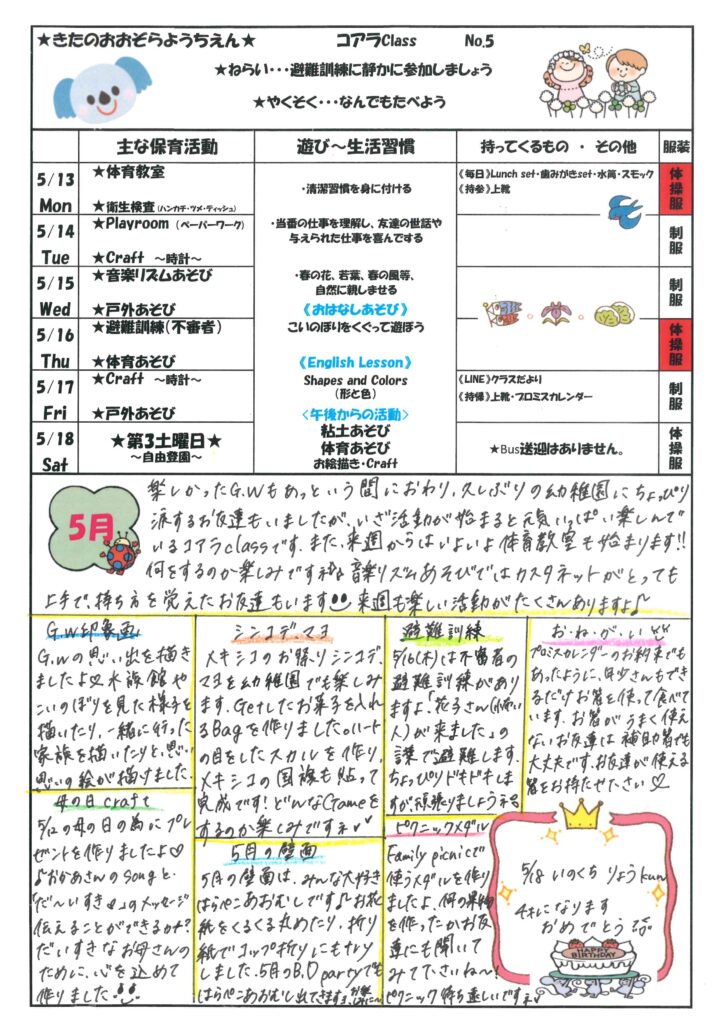 ★きたのおおぞらようちえん★ コアラClass No.5
★ねらい・・・避難訓練に静かに参加しましょう
★やくそく・・・なんでもたべよう
主な保育活動 遊び～生活習慣 持ってくるもの ・ その他 服装
5/13 Mon
★体育教室
★衛生検査(ハンカチ・ツメ・ティッシュ)
・清潔習慣を身に付ける
《毎日》Lunch set・歯みがきset・水筒・スモック
《持参》上靴
体操服
5/14 Tue
★Playroom (ペーパーワーク)
★Craft ～時計～
・当番の仕事を理解し、友達の世話や
与えられた仕事を喜んでする
制服
5/15 Wed
★音楽リズムあそび
★戸外あそび
・春の花、若葉、春の風等、
自然に親しませる
《おはなしあそび》
制服
5/16 Thu
★避難訓練(不審者)
★体育あそび
こいのぼりをくぐって遊ぼう
《English Lesson》
体操服
5/17 Fri
★Craft ～時計～
★戸外あそび
Shapes and Colors
(形と色)
<午後からの活動>
《LINE》クラスだより
《持帰》上靴・プロミスカレンダー
制服
5/18 Sat
★第3土曜日★
～自由登園～
粘土あそび
体育あそび
お絵描き・Craft
★Bus送迎はありません。
体操服
5月
楽しかったG.Wもあっという間におわり、久しぶりの幼稚園にちょっぴり
涙するお友達もいましたが、いざ活動が始まると元気いっぱい楽しんで
いるコアラclassです。また、来週からはいよいよ体育教室も始まります!!
何をするのか楽しみですネ♪音楽リズムあそびではカスタネットがとっても
上手で、持ち方を覚えたお友達もいます 来週も楽しい活動がたくさんありますよ♪
G.W印象画
G.Wの思い出を描き
ましたよ♡水族館や
こいのぼりを見た様子を
描いたり、一緒に行った
家族を描いたりと、思い
思いの絵が描けました。
母の日craft
5/12の母の日の為にプレ
ゼントを作りましたよ♡
♪おかあさんのsongと、
「だ～いすき♡」のメッセージ
伝えることができるかナ?
だいすきなお母さんの
ために、心を込めて
作りました!!
シンコデマヨ
メキシコのお祭りシンコデ
マヨを幼稚園でも楽しみ
ます。Getしたお菓子を入れ
るBagを作りました。ハート
の目をしたスカルを作り、
メキシコの国旗も貼って
完成です!どんなGameを
するのか楽しみですネ♪
5月の壁画
5月の壁画は、みんな大好き
はらぺこあおむしです♪お花
紙をくるくる丸めたり、折り
紙でコップ折りにもトライ
しました。5月のB.D partyでも
はらぺこあおむし出てきますョ
避難訓練
5/16(木)は不審者の
避難訓練があり
ますよ!「花子さん(
人)が来ました」の
課で避難します。
ちょっぴりドキドキしま
すが頑張りましょうネ
ピクニックメダル
Family picnicで
使うメダルを作り
ましたよ。何の果物
を作ったかお友
達にも聞いて
みて下さいね～!
ピクニック待ち遠しいですネ♪
お・ね・が・い
プロミスカレンダーのお約束でも
あったように、年少さんもでき
るだけお箸を使って食べて
います。お箸がうまく使え
ないお友達は補助箸でも
大丈夫です。お友達が使える
箸をお持たせ下さい♡
5/18 いのくち りょうkun
4才になります
おめでとう
HAPPY BIRTHDAY